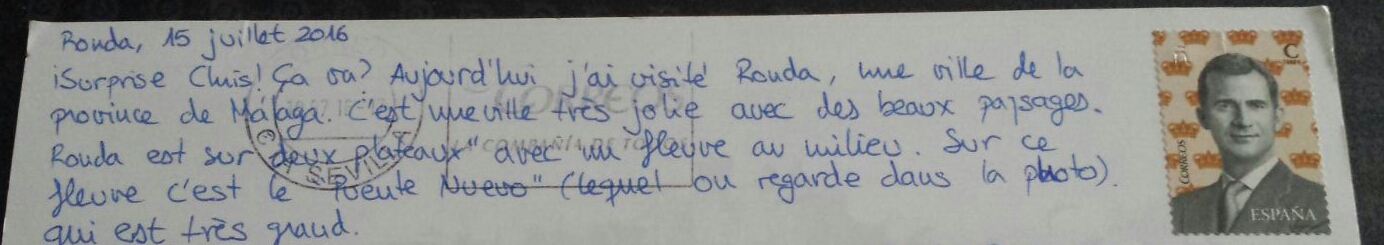 Ronda, 15 juillet 2016
¡Surprise Chris! Ça va? Aujourd'hui j'ai visité Ronda, une ville de la
province de Málaga. C'est une ville très jolie avec des beaux paysages.
Ronda est sur "deux plateaux" avec un fleuve au milieu. Sur ce
fleuve c'est le "Puente Nuevo" (lequel on regarde dans la photo).
qui est très grand.
CORREOS
LA COMPAÑÍA DE TODOS
SEVILLA
C
CORREOS
ESPAÑA